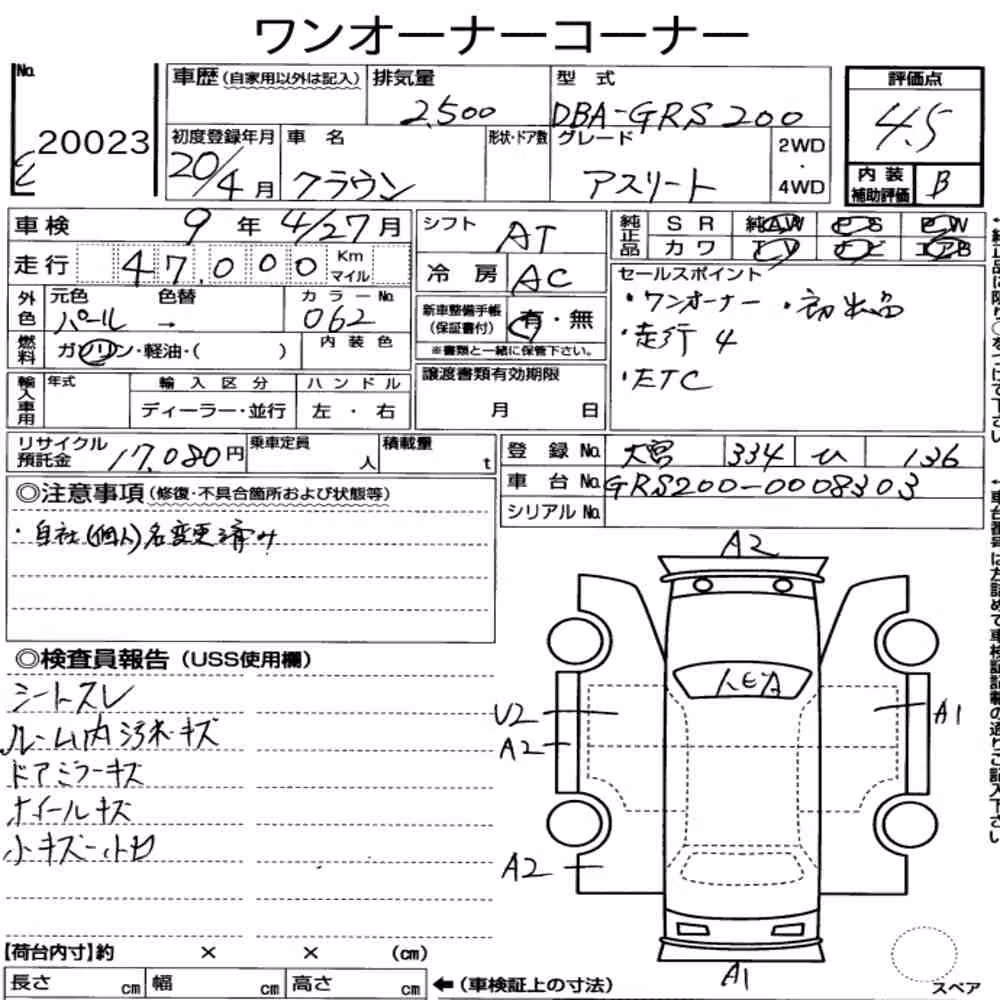 ワンオーナーコーナー
No. 20023
車歴(自家用以外は記入) 排気量 2,500 型式 DBA-GRS200
初度登録年月 20/4月 車名 クラウン 形状・ドア数 グレード アスリート 2WD・4WD
評価点 4.5
内装補助評価 B
車検 9年4/27月
走行 47,000 Km マイル
外色 元色 パール 色替 → カラーNo 062
燃料 ガソリン・軽油・( ) 内装色
輸入車用 年式 輸入区分 ディーラー・並行 ハンドル 左・右
シフト AT
冷房 AC
新車整備手帳(保証書付) 有・無
※書類と一緒に保管下さい。
譲渡書類有効期限 月 日
純正品 SR 純AW PS PW
カワ TV ナビ エアB
セールスポイント
・ワンオーナー ・初出品
・走行4
・ETC
リサイクル預託金 17,080円 乗車定員 人 積載量 t
登録No. 大宮 334 ひ 136
車台No. GRS200-0008303
シリアルNo.
◎注意事項(修復・不具合箇所および状態等)
・自社(個人)名変更済み
◎検査員報告(USS使用欄)
シートスレ
ルーム内汚れ・キズ
ドアミラーキズ
ホイールキズ
小キズ・小凹
A2
U2
A2
A1
A2
A1
スペア
【荷台内寸】約 × × (cm)
長さ cm 幅 cm 高さ cm ←(車検証上の寸法)